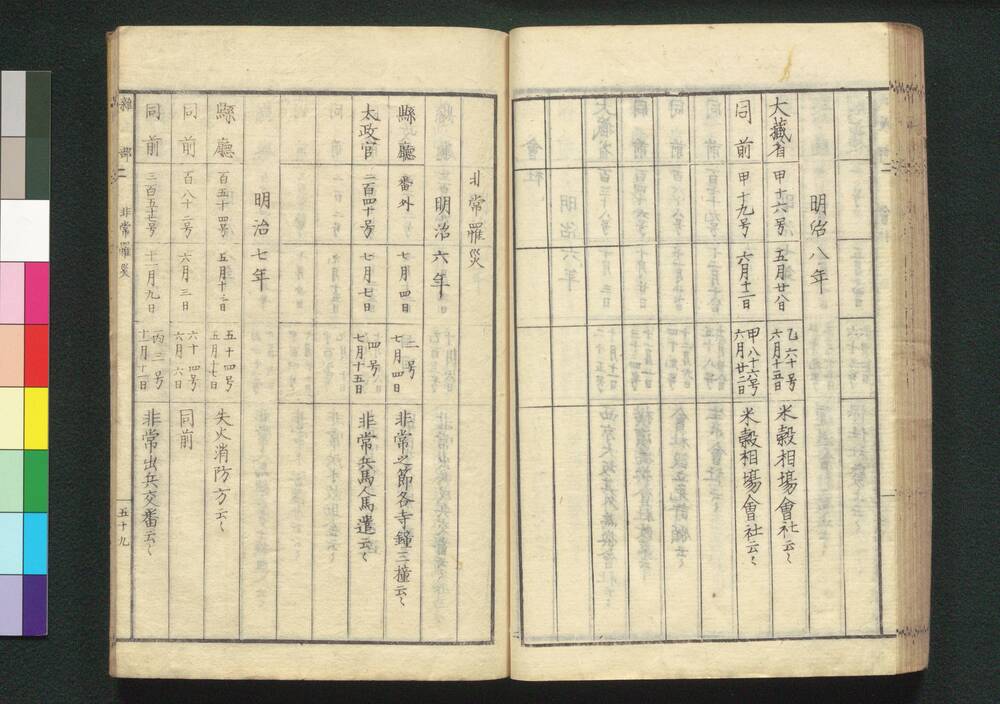 明治八年
大藏省 甲十六号 五月廿八日 乙六十号 六月十五日 米穀相場會社云〻
同前 甲十九号 六月十二日 甲八十六号 六月廿二日 米穀相場會社云〻
非常罹災
明治六年
縣廳 番外 七月四日 二号 七月四日 非常之節各寺鐘三撞云〻
太政官 二百四十号 七月七日 四号 七月十五日 非常兵馬人馬遣云〻
明治七年
縣廳 百五十四号 五月十三日 五十四号 五月十七日 失火消防方云〻
同前 百八十二号 六月三日 六十四号 六月六日 同前
同前 三百五十七号 十一月九日 丙三号 十一月十二日 非常出兵交番云〻
雜部二 非常罹災 五十九